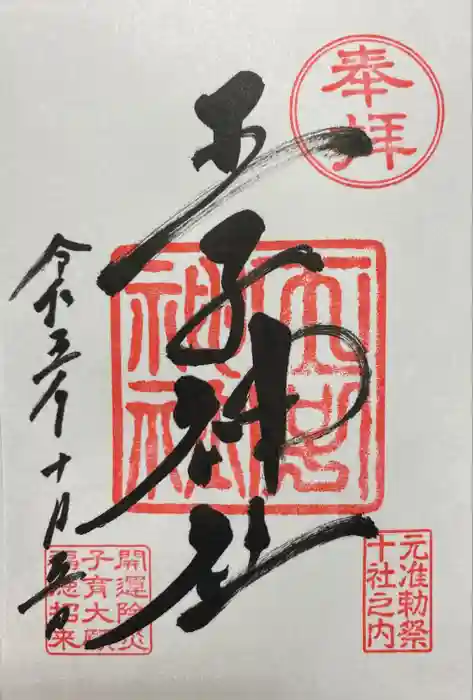 奉拝
王子神社
王子
神社
令和五年十月五日
元准勅祭
十社之内
開運除災
子育大願
福徳招来